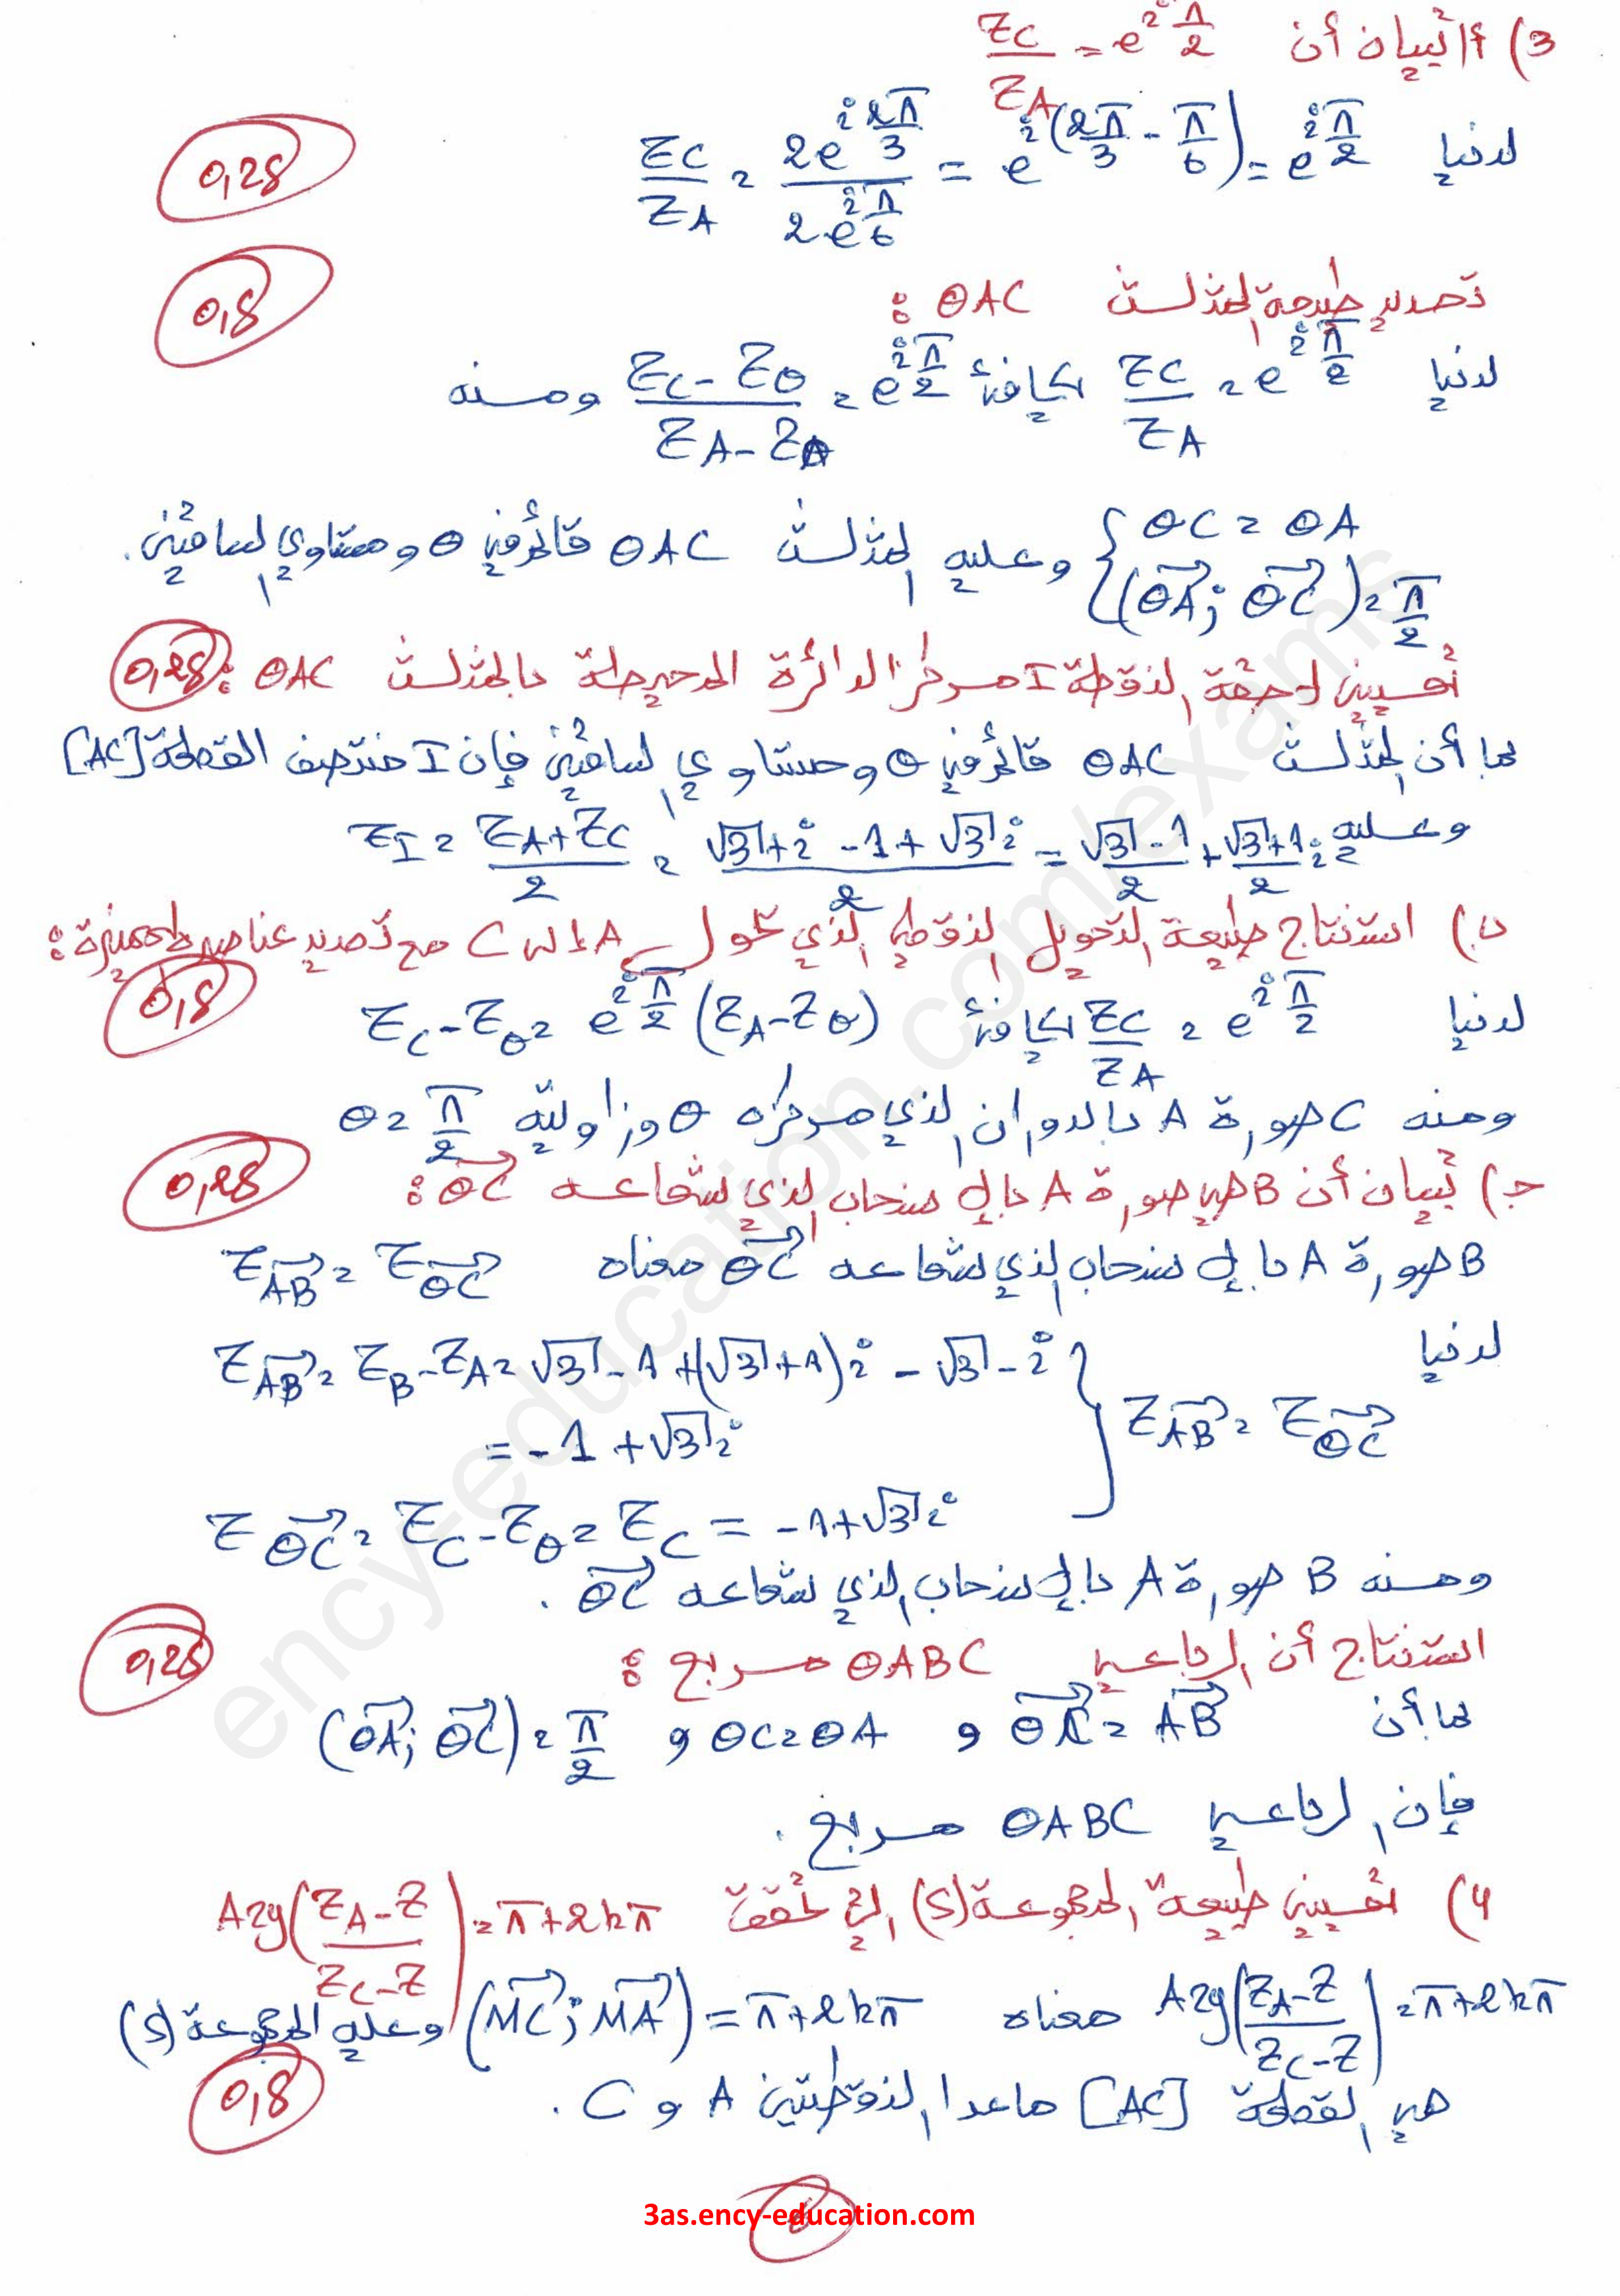 3) أ) تبيان أن Z_C/Z_A = e^{iπ/2}
لدينا Z_C/Z_A = 2e^{i2π/3}/2e^{iπ/6} = e^{i(2π/3 - π/6)} = e^{iπ/2}
0,25
0,5
تحديد طبيعة المثلث OAC :
لدينا Z_C/Z_A = e^{iπ/2} تكافئ (Z_C - Z_O)/(Z_A - Z_O) = e^{iπ/2} ومنه
{ OC = OA ; (OA→; OC→) = π/2 وعليه المثلث OAC قائم في O ومتساوي الساقين.
تعيين لاحقة النقطة I مركز الدائرة المحيطة بالمثلث OAC : 0,25
بما أن المثلث OAC قائم في O ومتساوي الساقين فإن I منتصف القطعة [AC]
وعليه Z_I = (Z_A + Z_C)/2 = (√3 + i - 1 + √3 i)/2 = (√3 - 1)/2 + (√3 + 1)/2 i
ب) استنتاج طبيعة التحويل النقطي الذي يحول A إلى C مع تحديد عناصره المميزة :
0,5
لدينا Z_C/Z_A = e^{iπ/2} تكافئ Z_C - Z_O = e^{iπ/2}(Z_A - Z_O)
ومنه C صورة A بالدوران الذي مركزه O وزاويته θ = π/2
0,25
ج) تبيان أن B هي صورة A بالإنسحاب الذي شعاعه OC→ :
B صورة A بالإنسحاب الذي شعاعه OC→ معناه Z_{AB→} = Z_{OC→}
لدينا
Z_{AB→} = Z_B - Z_A = √3 - 1 + (√3 + 1)i - √3 - i
= -1 + √3 i
} Z_{AB→} = Z_{OC→}
Z_{OC→} = Z_C - Z_O = Z_C = -1 + √3 i
ومنه B صورة A بالإنسحاب الذي شعاعه OC→ .
0,25
استنتاج أن الرباعي OABC مربع :
بما أن OC→ = AB→ و OC = OA و (OA→; OC→) = π/2
فإن الرباعي OABC مربع .
4) تعيين طبيعة المجموعة (S) التي تحقق Arg((Z_A - Z)/(Z_C - Z)) = π + 2kπ
Arg((Z_A - Z)/(Z_C - Z)) = π + 2kπ معناه (MC→; MA→) = π + 2kπ وعليه المجموعة (S)
هي القطعة [AC] ماعدا النقطتين A و C .
0,5
3as.ency-education.com
ency-education.com/exams